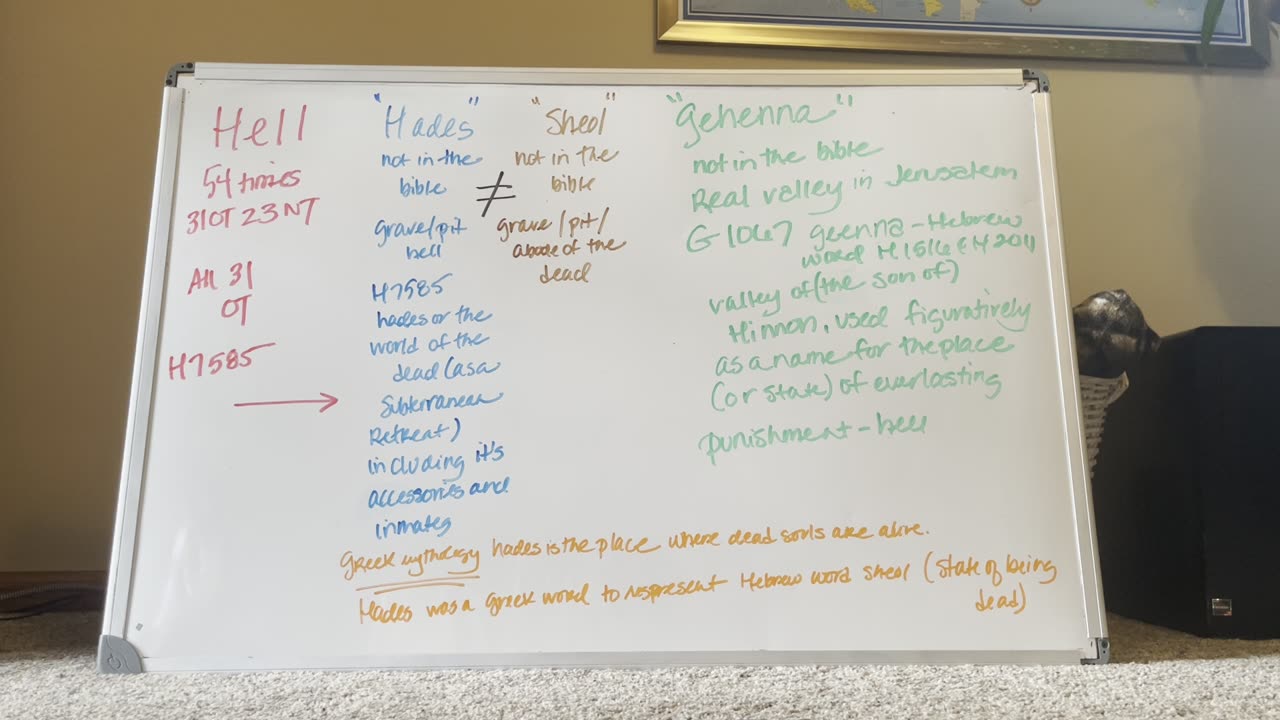 Hell
54 times
31 OT 23 NT
All 31
OT
H7585
"Hades"
not in the
bible
grave/pit
hell
H7585
hades or the
world of the
dead (as a
Subterranean
Retreat)
including it's
accessories and
inmates
≠
"Sheol"
not in the
bible
grave/pit/
abode of the
dead
"gehenna"
not in the bible
Real valley in Jerusalem
G1067 geenna - Hebrew
word H1516 & H2011
valley of (the son of)
Hinnon, used figuratively
as a name for the place
(or state) of everlasting
punishment - hell
Greek mythology hades is the place where dead souls are alive.
Hades was a greek word to respresent Hebrew word sheol (state of being
dead)